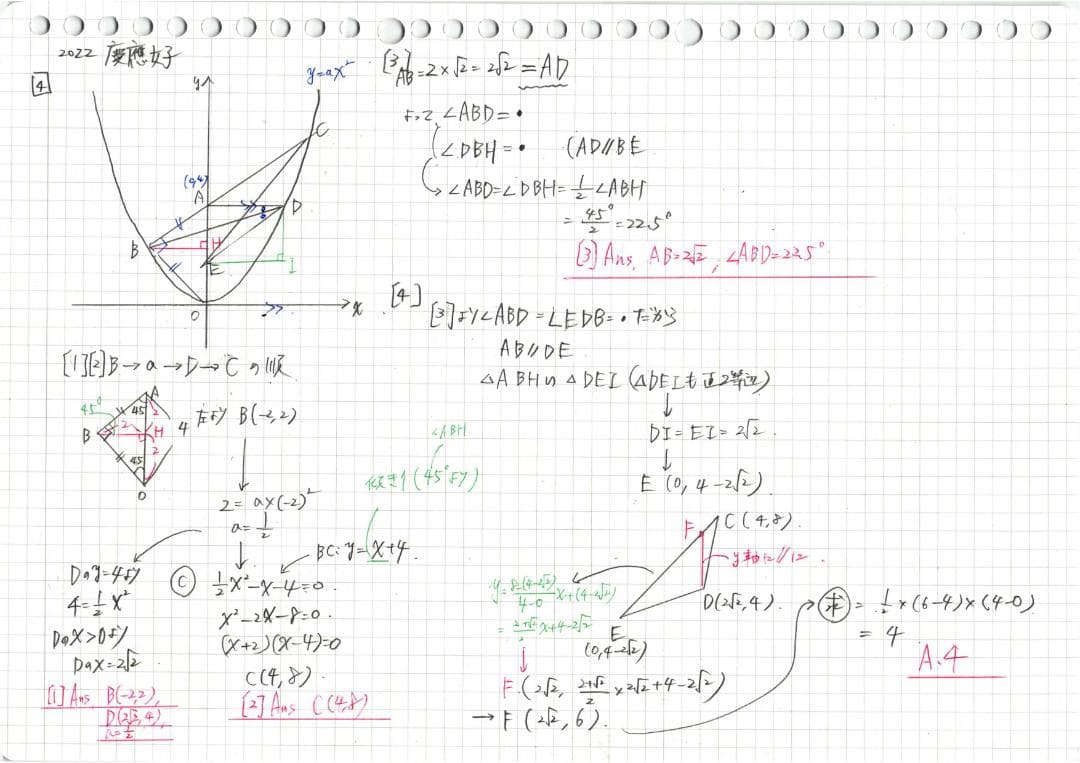 2022 慶應女子
[4]
y
y=ax²
C
(0,4)
A
D
B
H
E
I
O
x
[1][2] B→a→D→Cの順
45°
A
45
2
B
2
H
4
2
45
O
左より B(-2,2)
2=a×(-2)²
a=1/2
Dのy=4より
4=1/2x²
Dのx>0より
Dのx=2√2
[1] Ans B(-2,2),
D(2√2,4),
a=1/2
∠ABH
傾き1(45°より)
BC: y=x+4
C
1/2x²-x-4=0
x²-2x-8=0
(x+2)(x-4)=0
C(4,8)
[2] Ans C(4,8)
[3]
AB=2×√2=2√2=AD
よって∠ABD=•
∠DBH=• (AD//BE
∠ABD=∠DBH=1/2∠ABH
=45°/2=22.5°
[3] Ans, AB=2√2, ∠ABD=22.5°
[4]
[3]より∠ABD=∠EDB=•だから
AB//DE
△ABH∽△DEI (△DEIも直2等辺)
DI=EI=2√2
E(0,4-2√2)
F
C(4,8)
y軸に//
D(2√2,4)
E
(0,4-2√2)
y=8-(4-2√2)/4-0 x+(4-2√2)
=2+√2/2 x+4-2√2
F(2√2, 2+√2/2×2√2+4-2√2)
→F(2√2,6)
求=1/2×(6-4)×(4-0)
=4
A.4